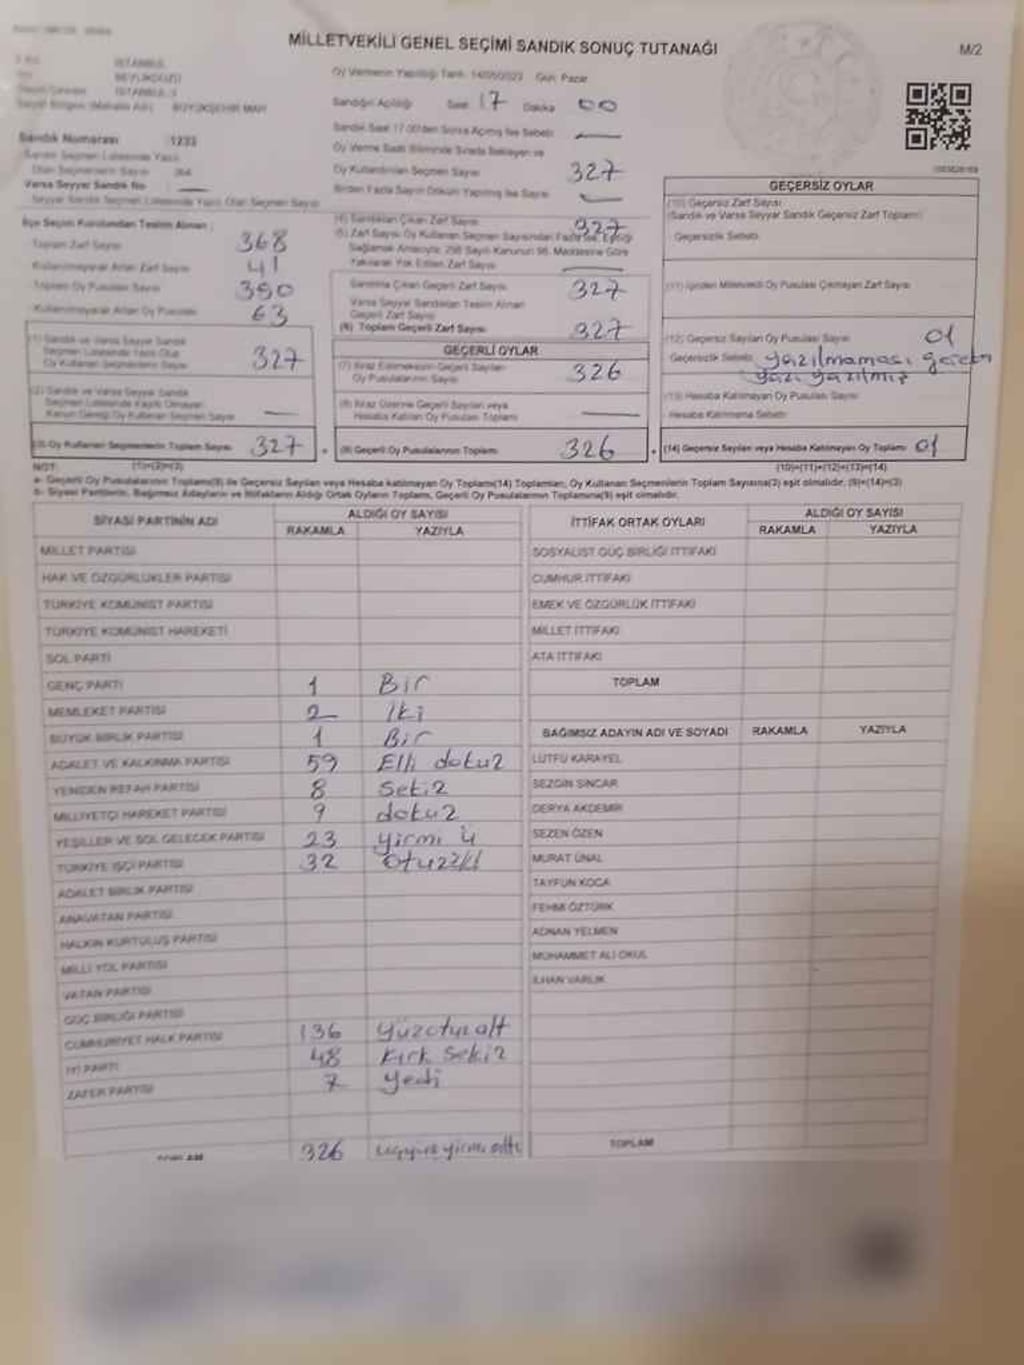 MİLLETVEKİLİ GENEL SEÇİMİ SANDIK SONUÇ TUTANAĞI
M/2
İSTANBUL
BEYLİKDÜZÜ
İSTANBUL 3
Oy Vermenin Yapıldığı Tarih: 14/05/2023 Gün: Pazar
Sandığın Açıldığı Saat 17 Dakika 00
Sandık Numarası 1233
Sandık Seçmen Listesinde Yazılı
Olan Seçmenlerin Sayısı 364
Varsa Seyyar Sandık No —
Seyyar Sandık Seçmen Listesinde Yazılı Olan Seçmen Sayısı
Sandık Saat 17.00'den Sonra Açılmış İse Sebebi —
Oy Verme Saati Bitiminde Sırada Bekleyen ve
Oy Kullandırılan Seçmen Sayısı 327
Birden Fazla Sayım Döküm Yapılmış İse Sayısı —
İlçe Seçim Kurulundan Teslim Alınan:
Toplam Zarf Sayısı 368
Kullanılmayarak Artan Zarf Sayısı 41
Toplam Oy Pusulası Sayısı 390
Kullanılmayarak Artan Oy Pusulası 63
(1) Sandık ve Varsa Seyyar Sandık
Seçmen Listesinde Yazılı Olup
Oy Kullanan Seçmenlerin Sayısı 327
(2) Sandık ve Varsa Seyyar Sandık
Seçmen Listesinde Kayıtlı Olmayan
Kanun Gereği Oy Kullanan Seçmen Sayısı —
(3) Oy Kullanan Seçmenlerin Toplam Sayısı 327
(1)+(2)=(3)
(4) Sandıktan Çıkan Zarf Sayısı 327
(5) Zarf Sayısı Oy Kullanan Seçmen Sayısından Fazla İse, Eşitliği
Sağlamak Amacıyla, 298 Sayılı Kanunun 98. Maddesine Göre
Yakılarak Yok Edilen Zarf Sayısı —
Sandıktan Çıkan Geçerli Zarf Sayısı 327
Varsa Seyyar Sandıktan Teslim Alınan
Geçerli Zarf Sayısı
(6) Toplam Geçerli Zarf Sayısı 327
GEÇERLİ OYLAR
(7) İtiraz Edilmeksizin Geçerli Sayılan
Oy Pusulalarının Sayısı 326
(8) İtiraz Üzerine Geçerli Sayılan veya
Hesaba Katılan Oy Pusulası Toplamı —
(9) Geçerli Oy Pusulalarının Toplamı 326
GEÇERSİZ OYLAR
(10) Geçersiz Zarf Sayısı
(Sandık ve Varsa Seyyar Sandık Geçersiz Zarf Toplamı)
Geçersizlik Sebebi:
(11) İçinden Milletvekili Oy Pusulası Çıkmayan Zarf Sayısı
(12) Geçersiz Sayılan Oy Pusulası Sayısı 01
Geçersizlik Sebebi: yazılmaması gereken
yazı yazılmış
(13) Hesaba Katılmayan Oy Pusulası Sayısı
Hesaba Katılmama Sebebi:
(14) Geçersiz Sayılan veya Hesaba Katılmayan Oy Toplamı 01
(10)+(11)+(12)+(13)=(14)
NOT:
a- Geçerli Oy Pusulalarının Toplamı(9) ile Geçersiz Sayılan veya Hesaba katılmayan Oy Toplamı(14) Toplamları, Oy Kullanan Seçmenlerin Toplam Sayısına(3) eşit olmalıdır. (9)+(14)=(3)
b- Siyasi Partilerin, Bağımsız Adayların ve İttifakların Aldığı Ortak Oyların Toplamı, Geçerli Oy Pusulalarının Toplamına(9) eşit olmalıdır.
SİYASİ PARTİNİN ADI ALDIĞI OY SAYISI
RAKAMLA YAZIYLA
MİLLET PARTİSİ
HAK VE ÖZGÜRLÜKLER PARTİSİ
TÜRKİYE KOMÜNİST PARTİSİ
TÜRKİYE KOMÜNİST HAREKETİ
SOL PARTİ
GENÇ PARTİ 1 Bir
MEMLEKET PARTİSİ 2 İki
BÜYÜK BİRLİK PARTİSİ 1 Bir
ADALET VE KALKINMA PARTİSİ 59 Elli dokuz
YENİDEN REFAH PARTİSİ 8 Sekiz
MİLLİYETÇİ HAREKET PARTİSİ 9 dokuz
YEŞİLLER VE SOL GELECEK PARTİSİ 23 yirmi
TÜRKİYE İŞÇİ PARTİSİ 32
ADALET BİRLİK PARTİSİ
ANAVATAN PARTİSİ
HALKIN KURTULUŞ PARTİSİ
MİLLİ YOL PARTİSİ
VATAN PARTİSİ
GÜÇ BİRLİĞİ PARTİSİ
CUMHURİYET HALK PARTİSİ 136 yüzotuzalt
İYİ PARTİ 48 Kırk Sekiz
ZAFER PARTİSİ 7 yedi
TOPLAM 326 üçyüzyirmi altı
İTTİFAK ORTAK OYLARI ALDIĞI OY SAYISI
RAKAMLA YAZIYLA
SOSYALİST GÜÇ BİRLİĞİ İTTİFAKI
CUMHUR İTTİFAKI
EMEK VE ÖZGÜRLÜK İTTİFAKI
MİLLET İTTİFAKI
ATA İTTİFAKI
TOPLAM
BAĞIMSIZ ADAYIN ADI VE SOYADI RAKAMLA YAZIYLA
LÜTFÜ KARAYEL
SEZGİN SİNCAR
DERYA AKDEMİR
SEZEN ÖZEN
MURAT ÜNAL
TAYFUN KOCA
FEHMİ ÖZTÜRK
ADNAN YELMEN
MUHAMMET ALİ OKUL
İLHAN VARLIK
TOPLAM